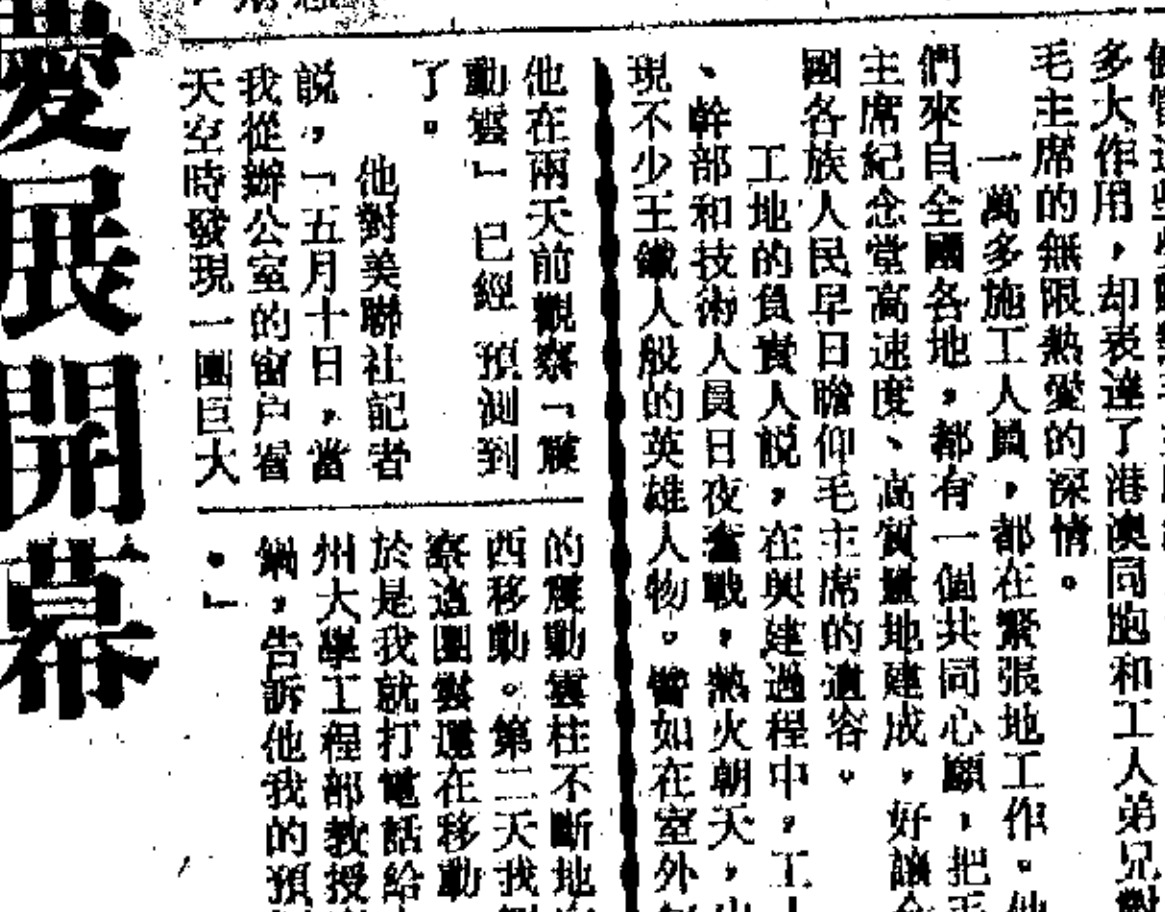 多大作用，却表達了港澳同胞和工人弟兄對
毛主席的無限熱愛的深情。
一萬多施工人員，都在緊張地工作。他
們來自全國各地，都有一個共同心願，把毛
主席紀念堂高速度、高質量地建成，好讓全
國各族人民早日瞻仰毛主席的遺容。
工地的負責人説，在興建過程中，工人
、幹部和技術人員日夜奮戰，熱火朝天，出
現不少王鐵人般的英雄人物。譬如在室外
他在兩天前觀察「震
動雲」已經預測到
了。
他對美聯社記者
説，「五月十日，當
我從辦公室的窗户看
天空時發現一團巨大
的震動雲柱不斷地
西移動。第二天我
察這團雲還在移動
於是我就打電話給
州大學工程部教授
鍋，告訴他我的預
。」
慶展開幕